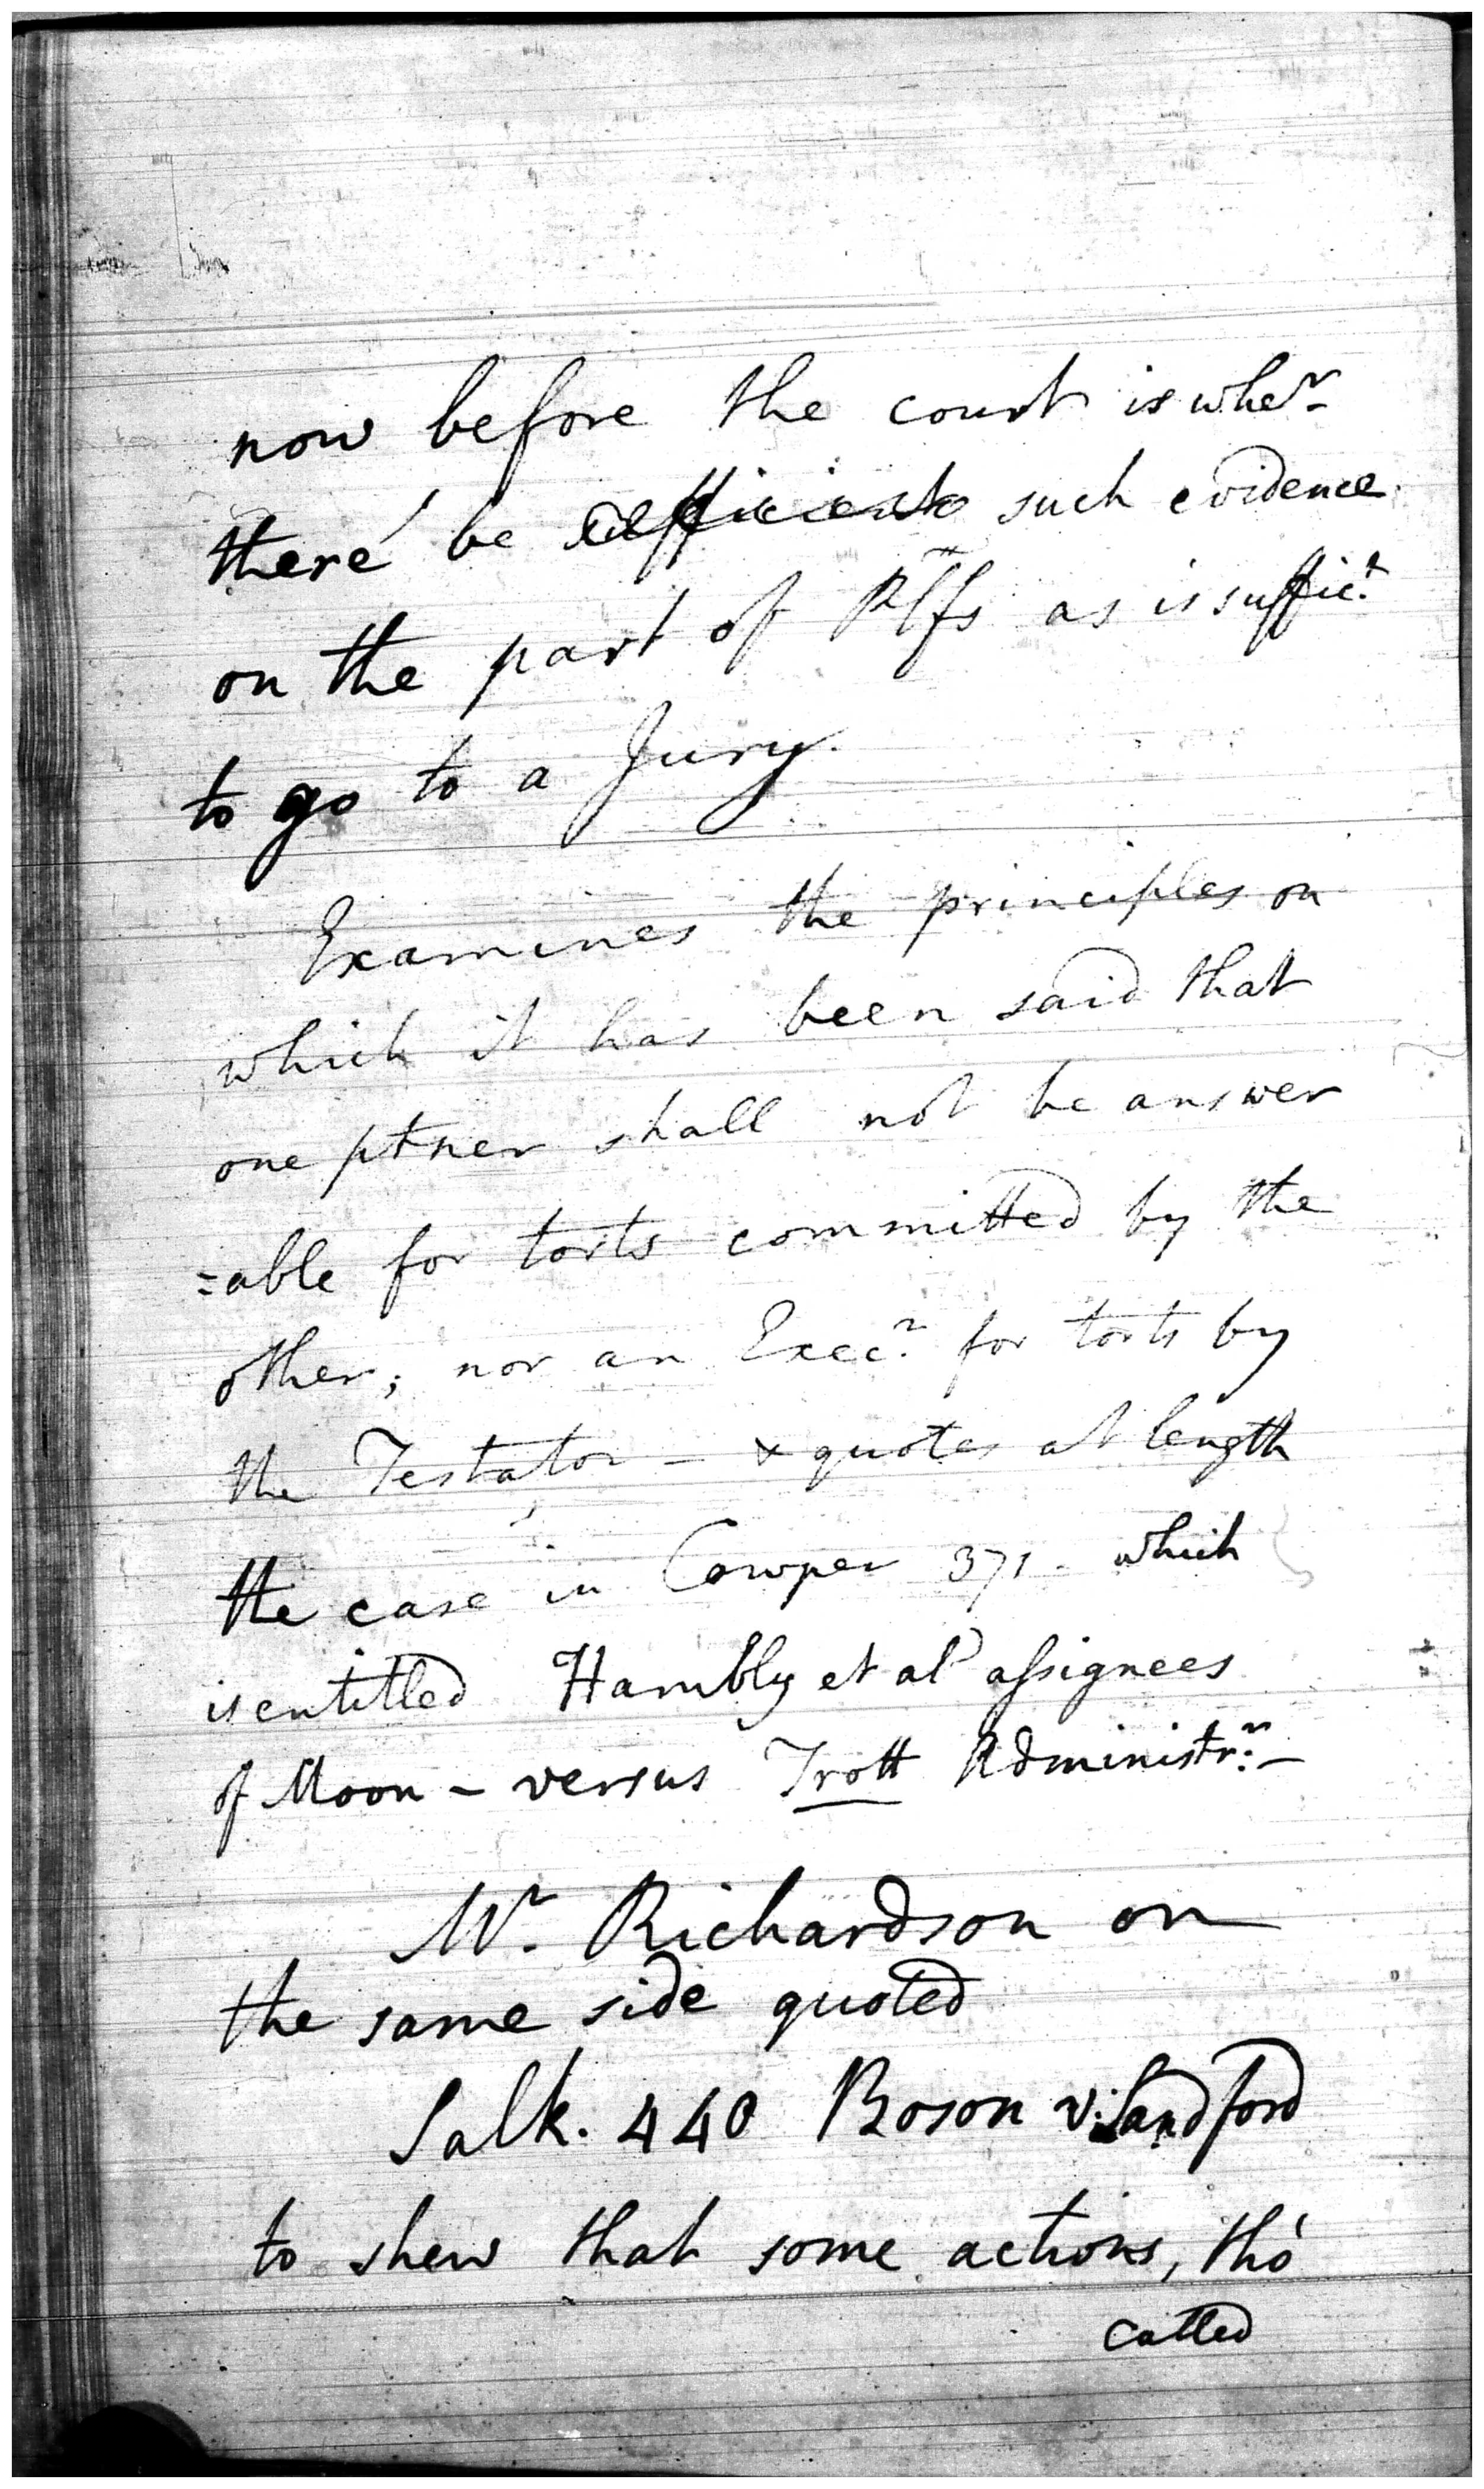 now before the court is whe.r
there be sufficient such evidence
on the part of Pltfs as is suffic.t
to go to a Jury.
Examines the principles on
which it has been said that
one ptner shall not be answer
=able for torts committed by the
other; nor an Exec.r for torts by
the Testator — & quotes at length
the case in Cowper 371 - which
is entitled Hambly et al assignees
of Moon - versus Trott Administr.r -
M.r Richardson on
the same side quoted
Salk. 440 Boson v. Sandford
to shew that some actions, tho'
called